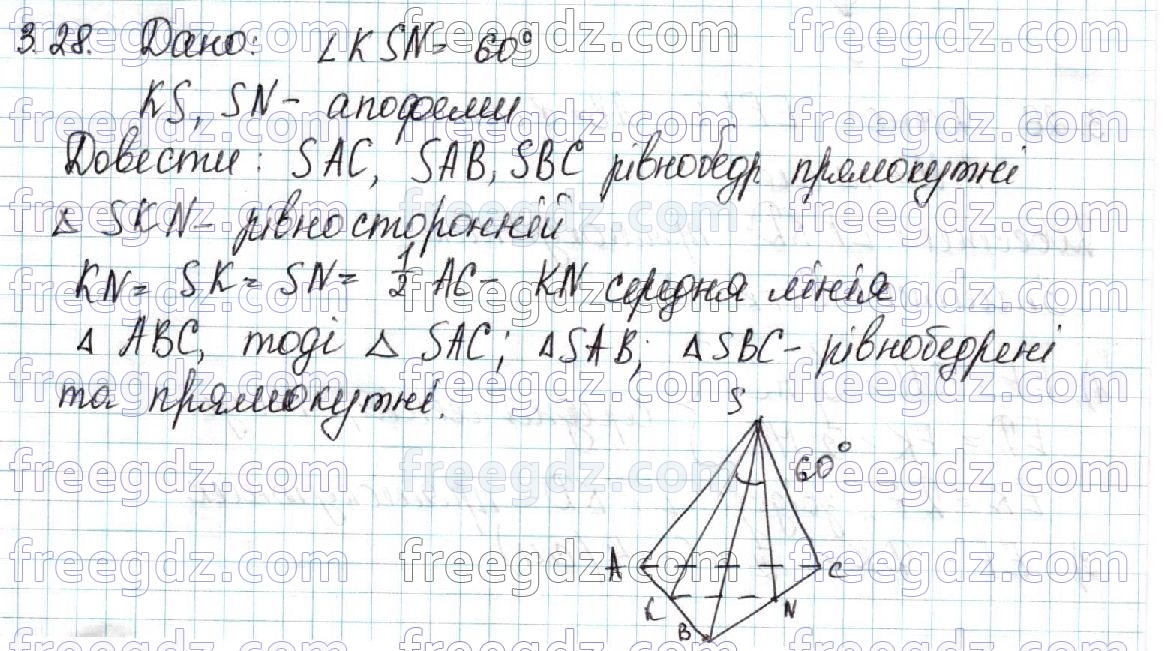 3.28. Дано: ∠KSN = 60°
KS, SN - апофеми
Довести: SAC, SAB, SBC рівнобедр прямокутні
△ SKN - рівносторонній
KN = SK = SN = 1/2 AC - KN середня лінія
△ ABC, тоді △ SAC; △SAB; △SBC - рівнобедрені
та прямокутні.
S
60°
A
C
K
N
B
freegdz.com